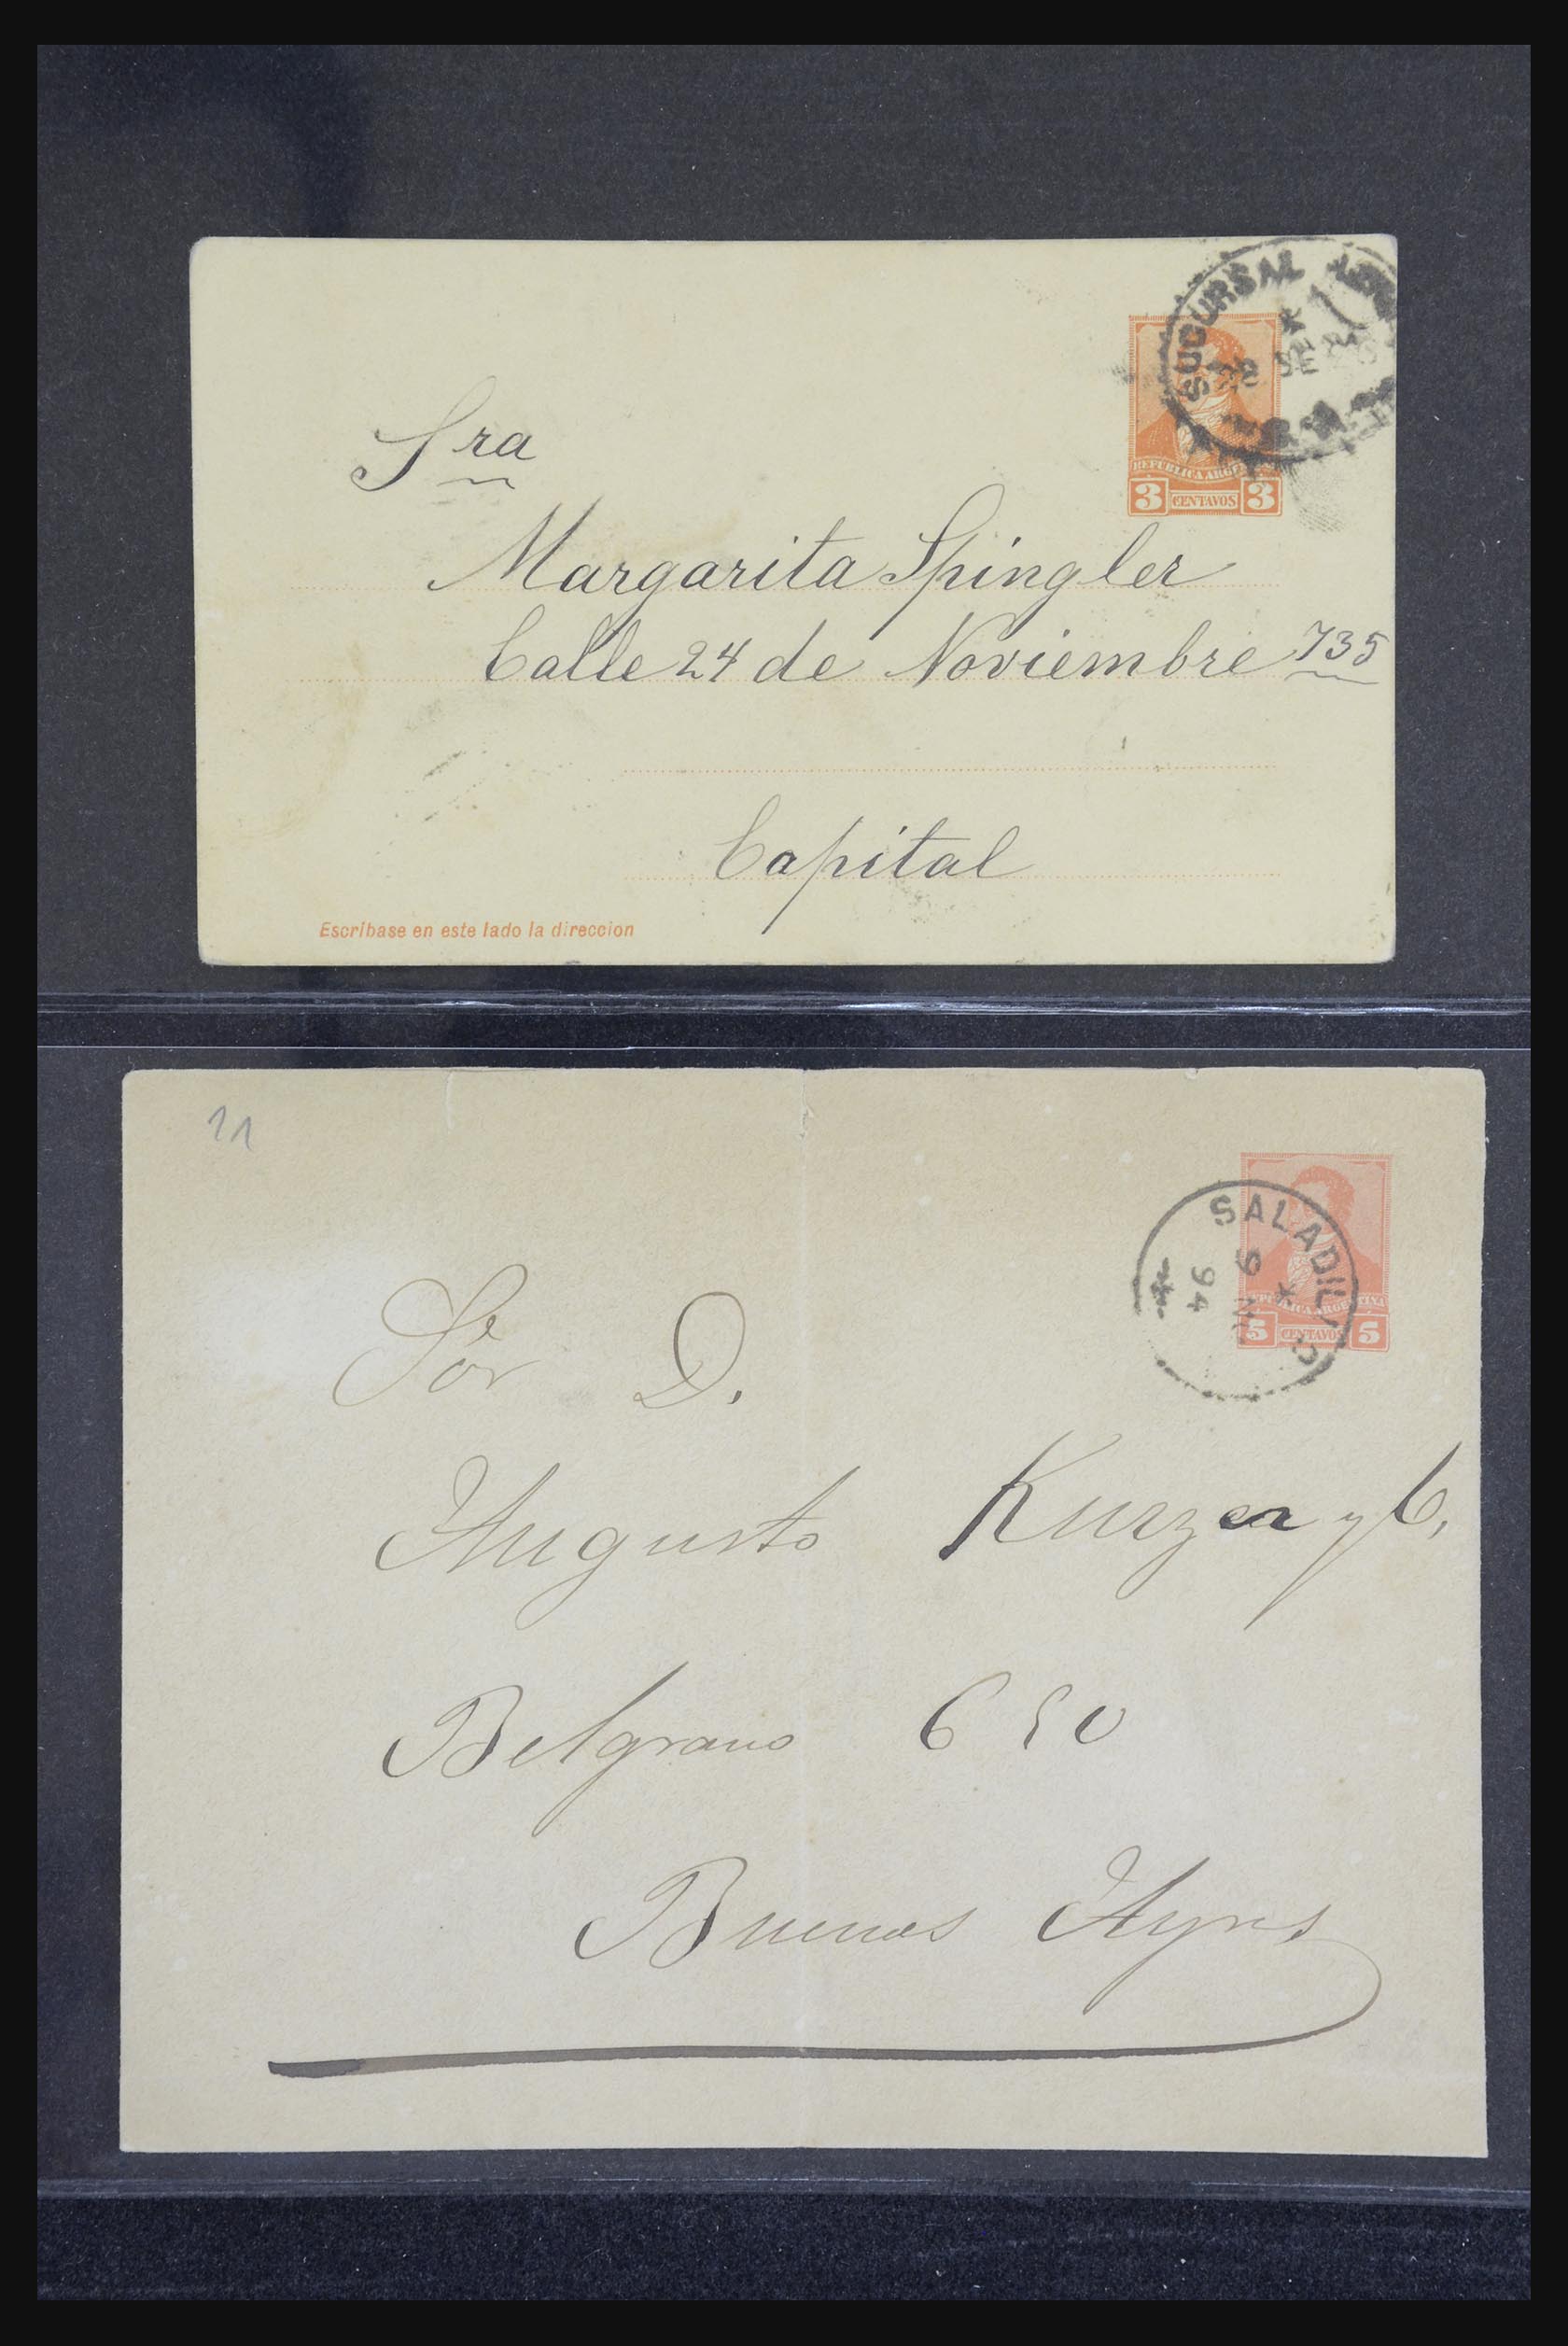 SUCURSAL
REPUBLICA ARGE
3 CENTAVOS 3
Sra
Margarita Spingler
Calle 24 de Noviembre 735
Capital
Escríbase en este lado la direccion
11
SALADILLO
9
94
REPUBLICA ARGENTINA
5 CENTAVOS 5
Sor D.
Augusto Kurzer y C.
Belgrano 650
Buenos Ayres